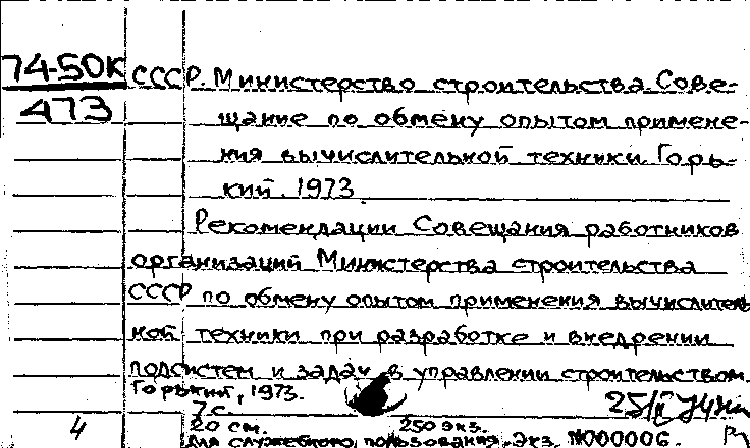 74-50К СССР. Министерство строительства. Сове-
473 щание по обмену опытом примене-
ния вычислительной техники. Горь-
кий. 1973
Рекомендации Совещания работников
организаций Министерства строительства
СССР по обмену опытом применения вычислитель
ной техники при разработке и внедрении
подсистем и задач в управлении строительством.
Горький, 1973.
7 с.
4 20 см. 250 экз.
Для служебного пользования. Экз. №000006.